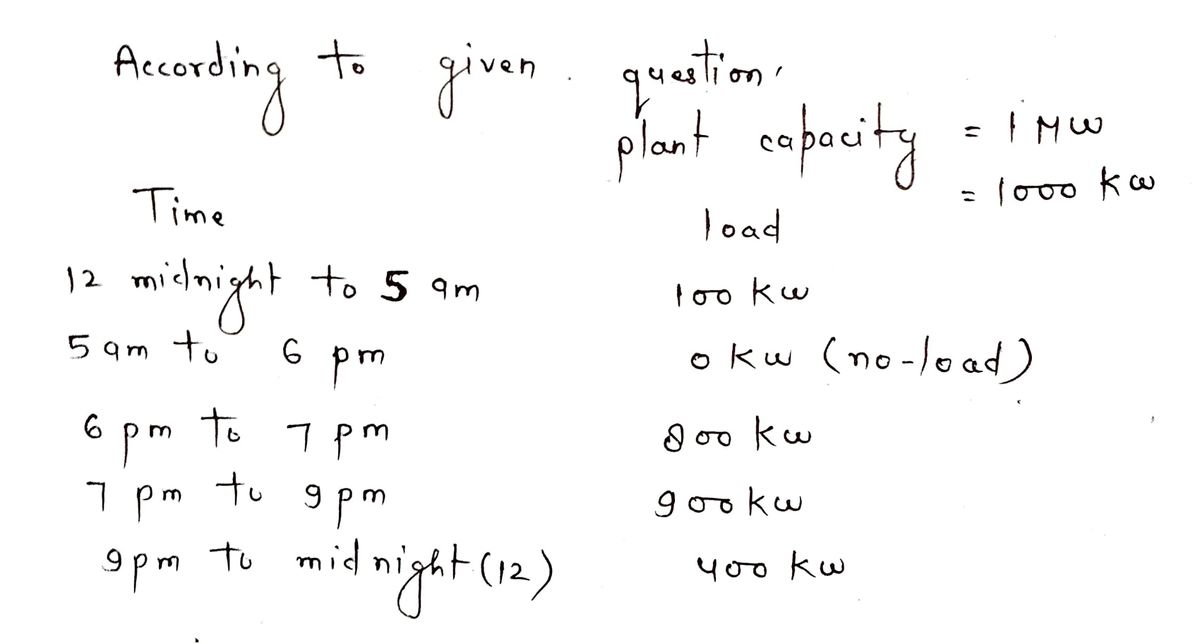 According to given question,
plant capacity = 1 MW
= 1000 kw
Time load
12 midnight to 5 am 100 kw
5 am to 6 pm 0 kw (no-load)
6 pm to 7 pm 800 kw
7 pm to 9 pm 900 kw
9 pm to midnight (12) 400 kw